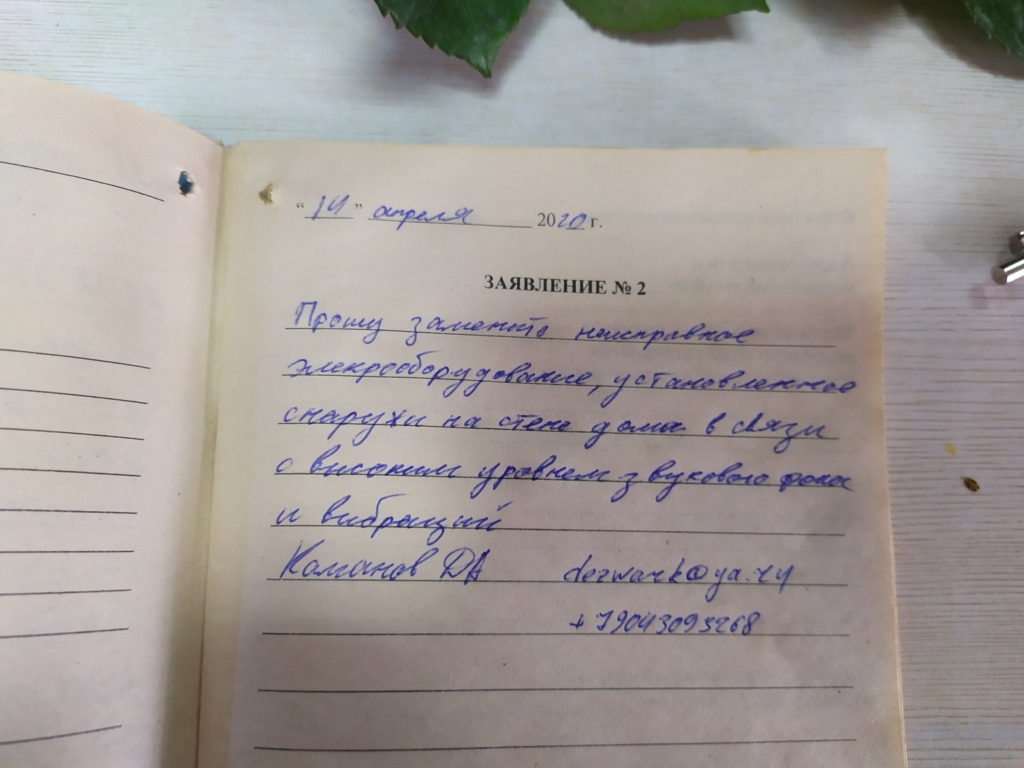 “ 14 ” апреля 2020 г.
ЗАЯВЛЕНИЕ № 2
Прошу заменить неисправное
элекрооборудование, установленное
снаружи на стене дома в связи
с высоким уровнем звукового фона
и вибраций
Команов ДА dezwork@ya.ru
+79043095268